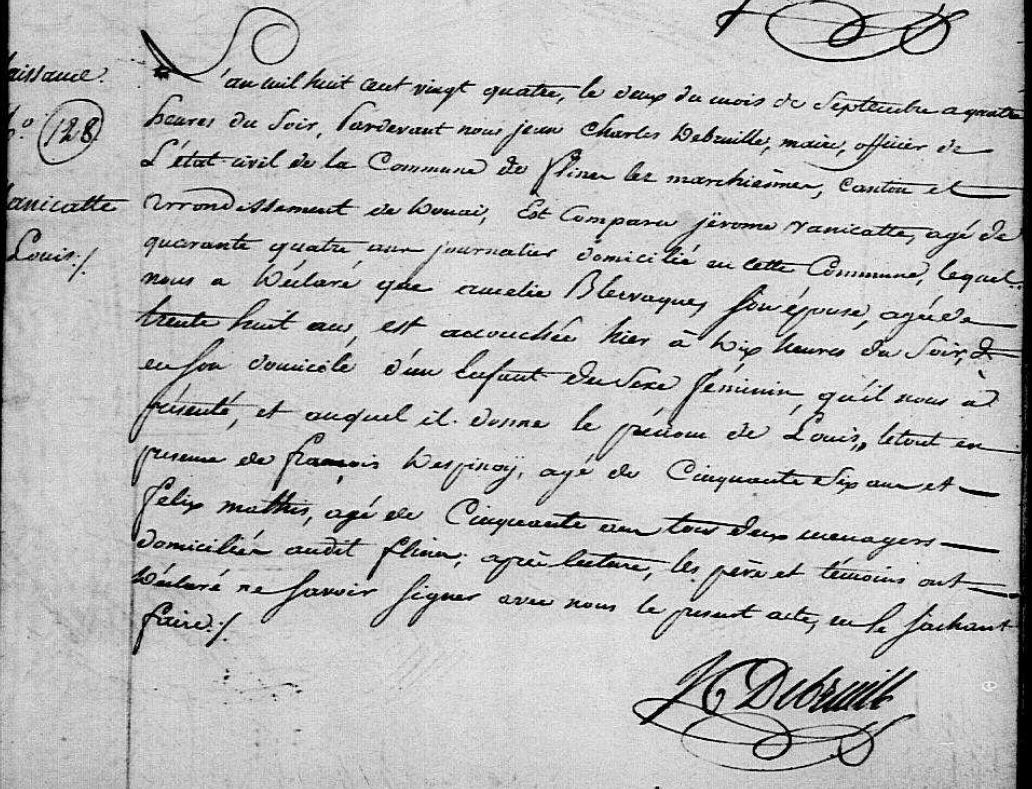 aissance.
N.o 128
Vanicatte
Louis./.
L'an mil huit cent vingt quatre, le deux du mois de Septembre a quatre
heures du Soir, Pardevant nous jean Charles Debruille, maire, officier de
L'état civil de la Commune de flines lez marchiennes, Canton et
arrondissement de Douai, Est Comparu jèrome vanicatte, agé de
quarante quatre ans journalier domicilié en cette Commune, lequel
nous a Déclaré que amelie Blervaque, Son épouse, agée de
trente huit ans, est accouchée hier à Dix heures du Soir,
en Son domicile d'un Enfant du Sexe féminin, qu'il nous à
présenté, et auquel il donne le prénom de Louis, letout en
presence de françois Despinoÿ, agé de Cinquante Six ans et
félix mathis, agé de Cinquante ans tous deux menagers
domiciliés audit flines; après lecture, les père et témoins ont
Déclaré ne Savoir Signer avec nous le présent acte, en le Sachant
faire./.
JC Debruille